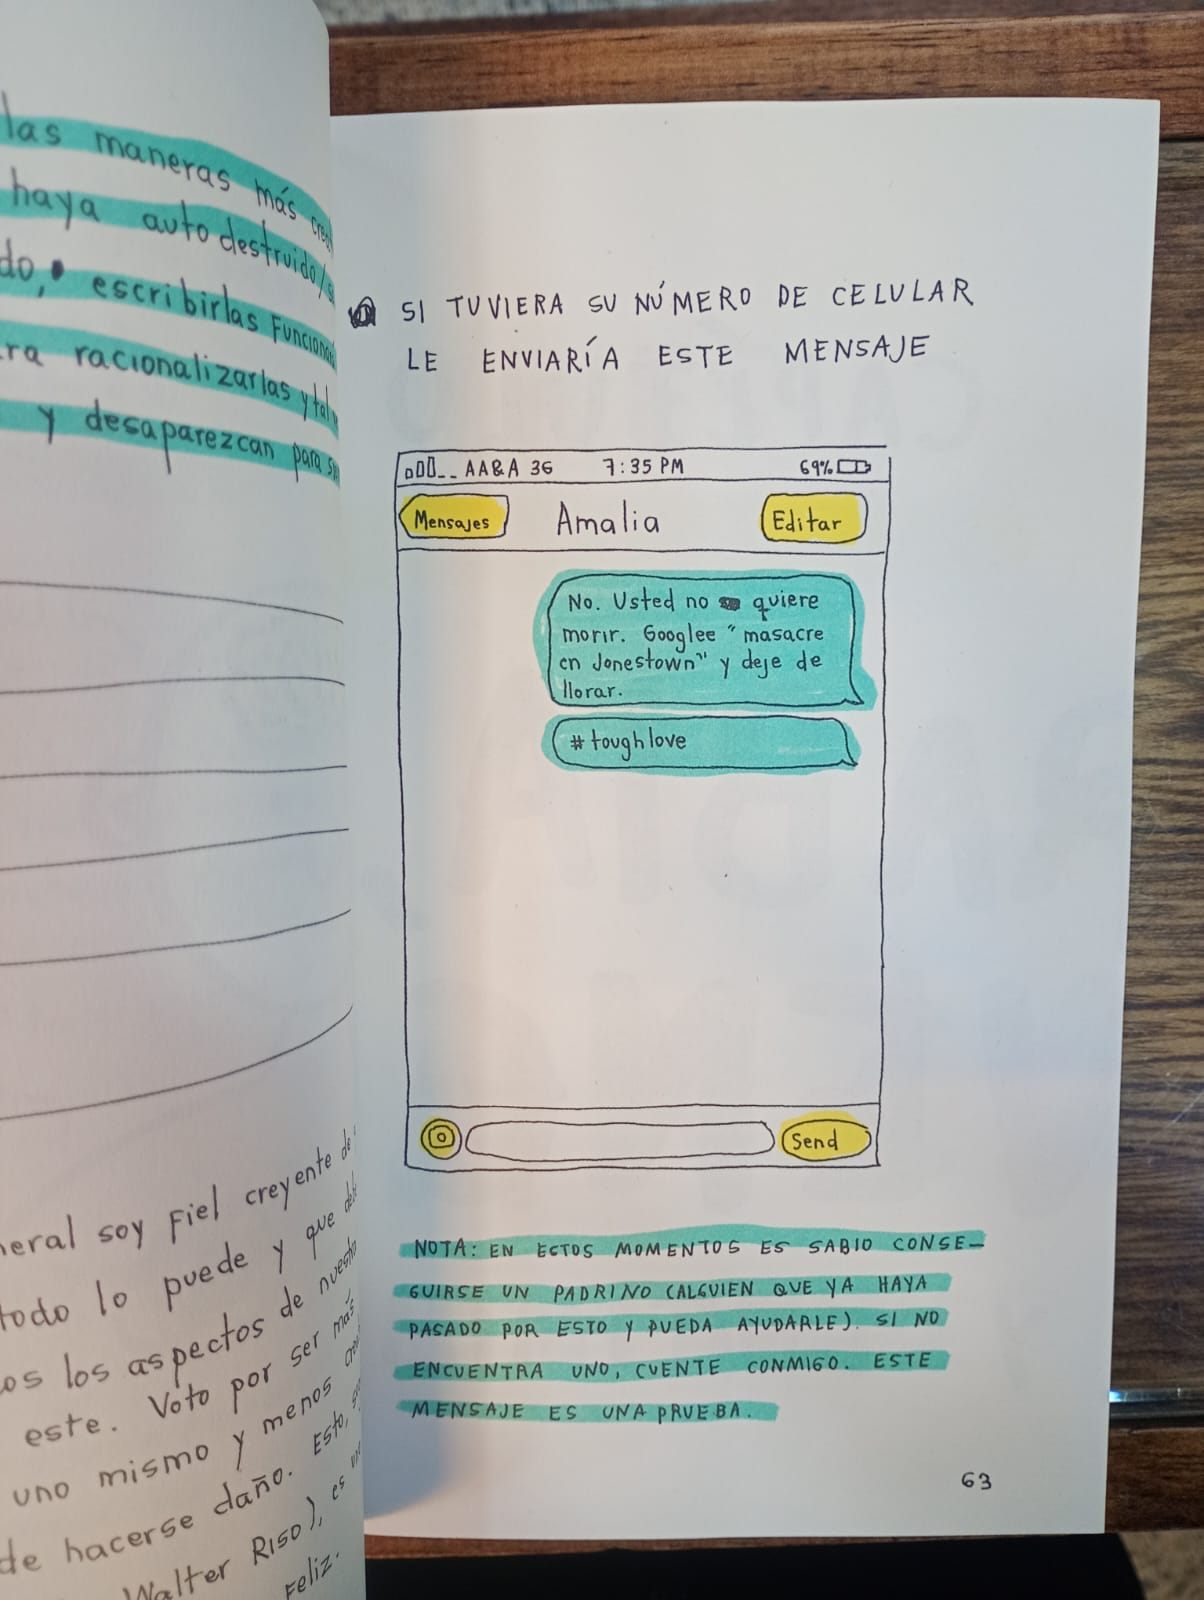 las maneras más
haya auto destruido/
do, escribirlas Funciona
ra racionalizarlas y tal
y desaparezcan para
neral soy Fiel creyente de
todo lo puede y que
os los aspectos de nuestro
este. Voto por ser más
uno mismo y menos
de hacerse daño. Esto,
Walter Riso), es
Feliz.
SI TUVIERA SU NÚMERO DE CELULAR
LE ENVIARÍA ESTE MENSAJE
AA&A 3G 7:35 PM 69%
Mensajes Amalia Editar
No. Usted no quiere
morir. Googlee "masacre
en Jonestown" y deje de
llorar.
#toughlove
Send
NOTA: EN ESTOS MOMENTOS ES SABIO CONSE-
GUIRSE UN PADRINO (ALGUIEN QUE YA HAYA
PASADO POR ESTO Y PUEDA AYUDARLE). SI NO
ENCUENTRA UNO, CUENTE CONMIGO. ESTE
MENSAJE ES UNA PRUEBA.
63